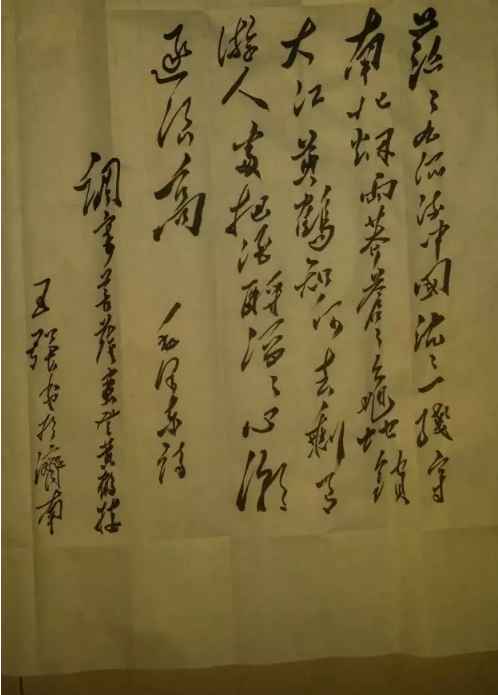 茫々九派流中國沉々一线穿
南北烟雨莽苍々龟蛇锁
大江黄鹤知何去剩有
游人处把酒酹滔々心潮
逐浪高 毛泽东诗
调寄菩萨蛮登黄鹤楼
王强书于济南